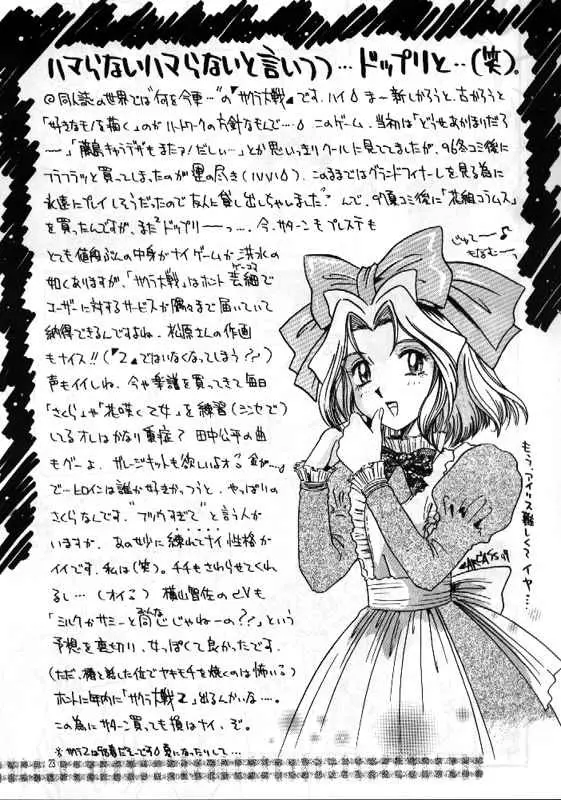 ハマらないハマらないと言いつつ…ドップリと…(笑)。
◎同人誌の世界では"何を今更…"の『サクラ大戦』です、ハイ◊ ま〜新しかろうと、古かろうと
「好きなモノを描く」のが の方針なもんで…◊ このゲーム、当初は「どうせあかほりだろ
〜」「藤島キャラでもまたァ!だしィ…」とか思いっきりクールに見てましたが、96冬コミ後に
フラフラッと買ってしまったのが運の尽き(IVIVI◊) このままではグランドフィナーレを見る為に
永遠にプレイしそうだったので友人に貸し出しちゃしました。んで、97夏コミ後に「花組コラムス」
を買ったんですが、まだドップリ〜〜っ…。今、サターンもプレステも
とても値段ぶんの中身がナイゲームが洪水の
如くありますが、『サクラ大戦』はホント芸細で
ユーザーに対するサービスが隅々まで届いていて
納得できるんですよね、松原さんの作画
もナイス!!(『2』ではいなくなってしまう??)
声もイイしね、今や楽譜を買ってきて毎日
「さくら」や「花咲く乙女」を練習(シンセで)
してるオレはかなり重症? 田中公平の曲
もグーよ、ガレージキットも欲しいよォる 金が…◊
で…ヒロインは誰が好きかっつうと、やっぱりの
さくらなんです。"フツウすぎて"と言う人が
いますが、あの妙に練れてナイ性格が
イイです、私は(笑)。チチもさわらせてくれ
るし…(オイ◊) 横山智佐のCVも
「ミルクかサミーと同じじゃねーの??」という
予想を裏切り、女っぽくて良かったです。
(ただ、椿と話した位でヤキモチを焼くのは怖いる)
ホントに年内に『サクラ大戦2』出るんかいな…。
この為にサターン買っても損はナイ、ぞ。
じゅて〜む♪
もなむ〜っ
もう、アイリス難しくてイヤ…
23